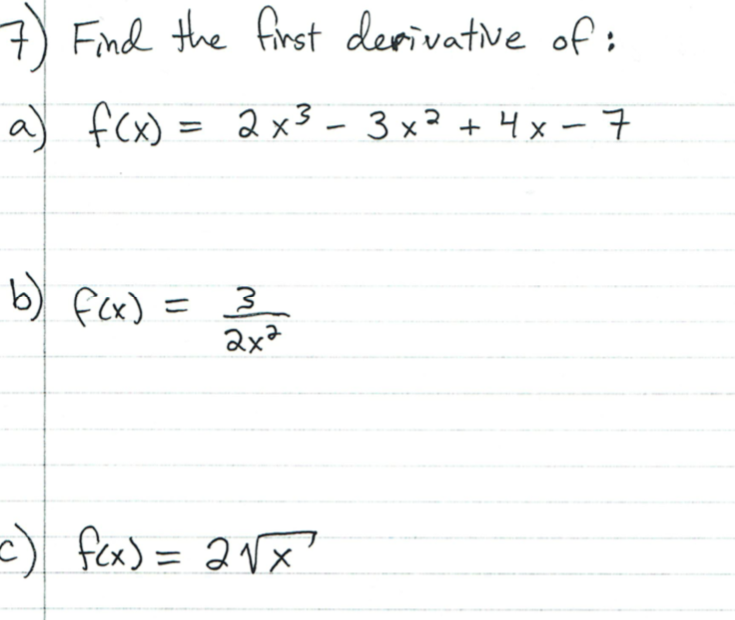 7) Find the first derivative of:
a) f(x) = 2x³ - 3x² + 4x - 7
b) f(x) = 3/2x²
c) f(x) = 2√x